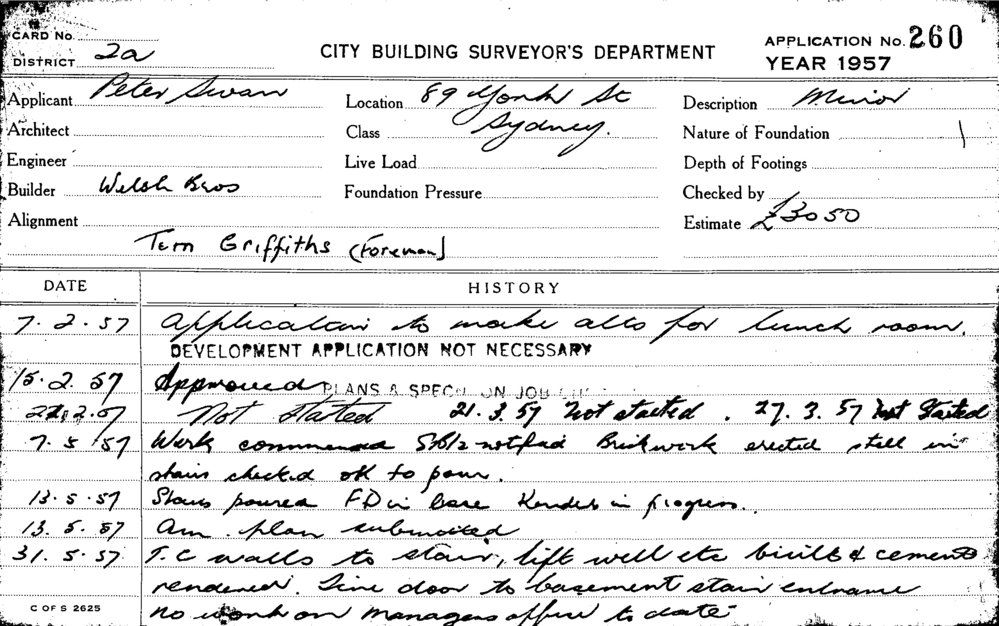 CARD No.
DISTRICT 2a
CITY BUILDING SURVEYOR'S DEPARTMENT
APPLICATION No. 260
YEAR 1957
Applicant Peter Swan
Location 89 York St
Sydney.
Description Minor
Architect
Class
Nature of Foundation
Engineer
Live Load
Depth of Footings
Builder Welsh Bros
Foundation Pressure
Checked by
Alignment
Estimate £3050
Tom Griffiths (Foreman)
DATE
HISTORY
7.2.57 Application to make alts for lunch room.
DEVELOPMENT APPLICATION NOT NECESSARY
15.2.57 Approved PLANS & SPEC ON JOB
2.57 Not started 21.3.57 Not started. 27.3.57 Not Started
7.5.57 Work commenced notified Brickwork erected steel in
stairs checked ok to pour.
13.5.57 Stairs poured FD in base Render in progress.
13.5.57 Am. plan submitted
31.5.57 T.C walls to stair, lift well etc built & cement
rendered. door to basement stair entrance
no work on managers office to date
C OF S 2625